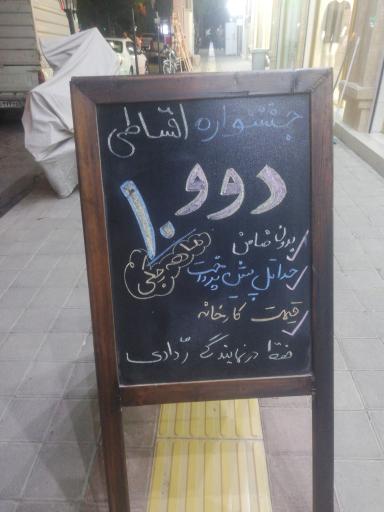 جشنواره اقساطی
دوو
۱۰ ماهه
بدون ضامن
حداقل پیش پرداخت
قیمت کارخانه
فقط در نمایندگی ردادی